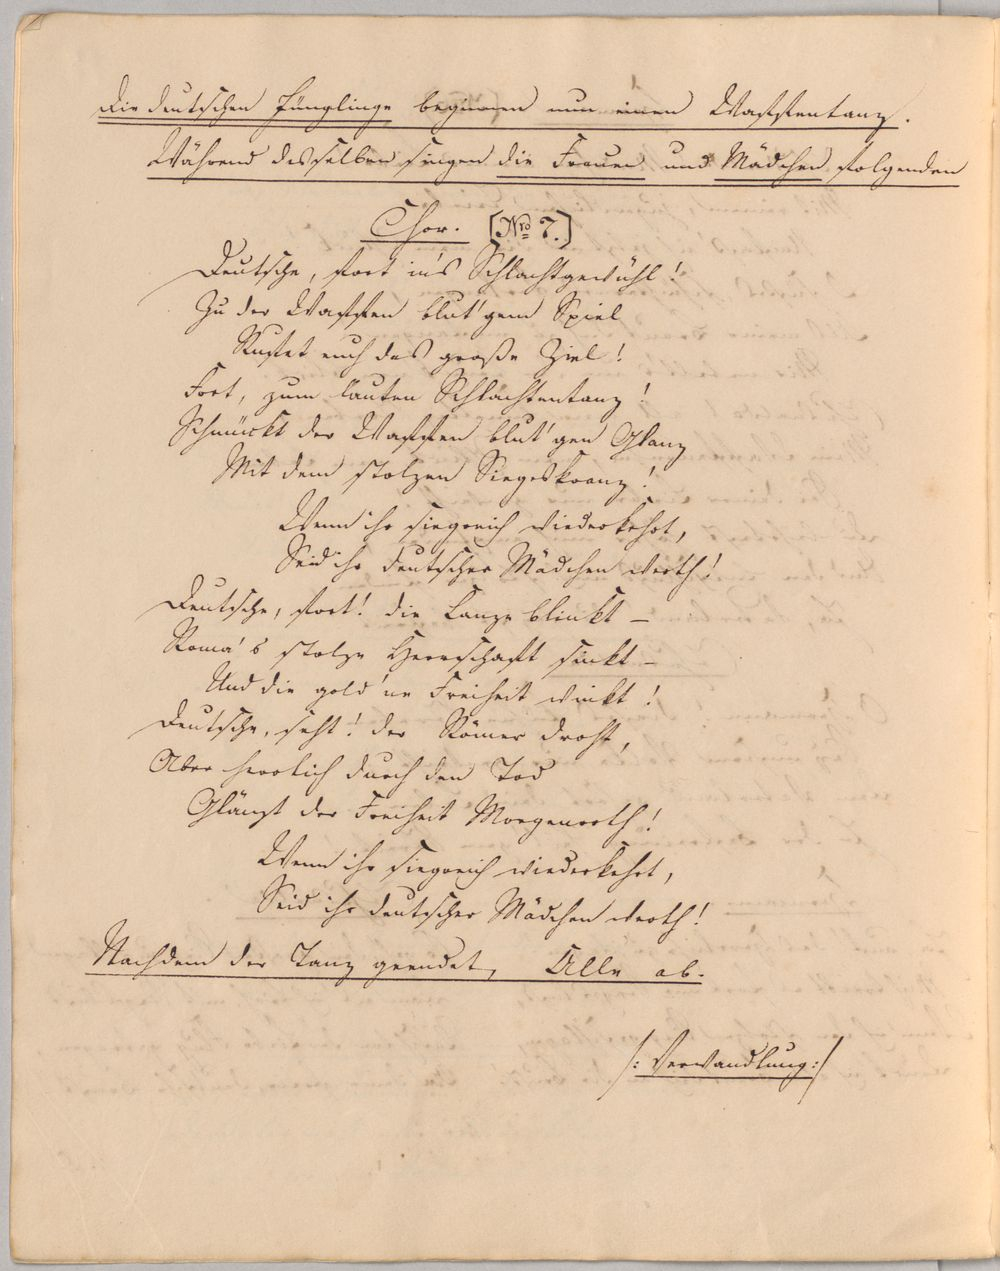 Die deutschen Jünglinge beginnen nun einen Waffentanz.
Während desselben singen die Frauen und Mädchen folgenden
Chor. [Nro 7.]
Deutsche, fort in's Schlachtgewühl!
Zu der Waffen blut'gem Spiel
Rustet euch das große Ziel!
Fort, zum lauten Schlachtentanz!
Schmückt der Waffen blut'gen Glanz
Mit dem stolzen Siegeskranz!
Wenn ihr siegreich wiederkehrt,
Seid ihr deutscher Mädchen werth!
Deutsche, fort! die Lanze blinkt –
Roma's stolze Herrschaft sinkt –
Und die gold'ne Freiheit winkt!
Deutsche, seht! der Römer droht,
Aber herrlich durch den Tod
Glänzt der Freiheit Morgenroth!
Wenn ihr siegreich wiederkehrt,
Seid ihr deutscher Mädchen werth!
Nachdem der Tanz geendet, Alle ab.
/: Verwandlung :/